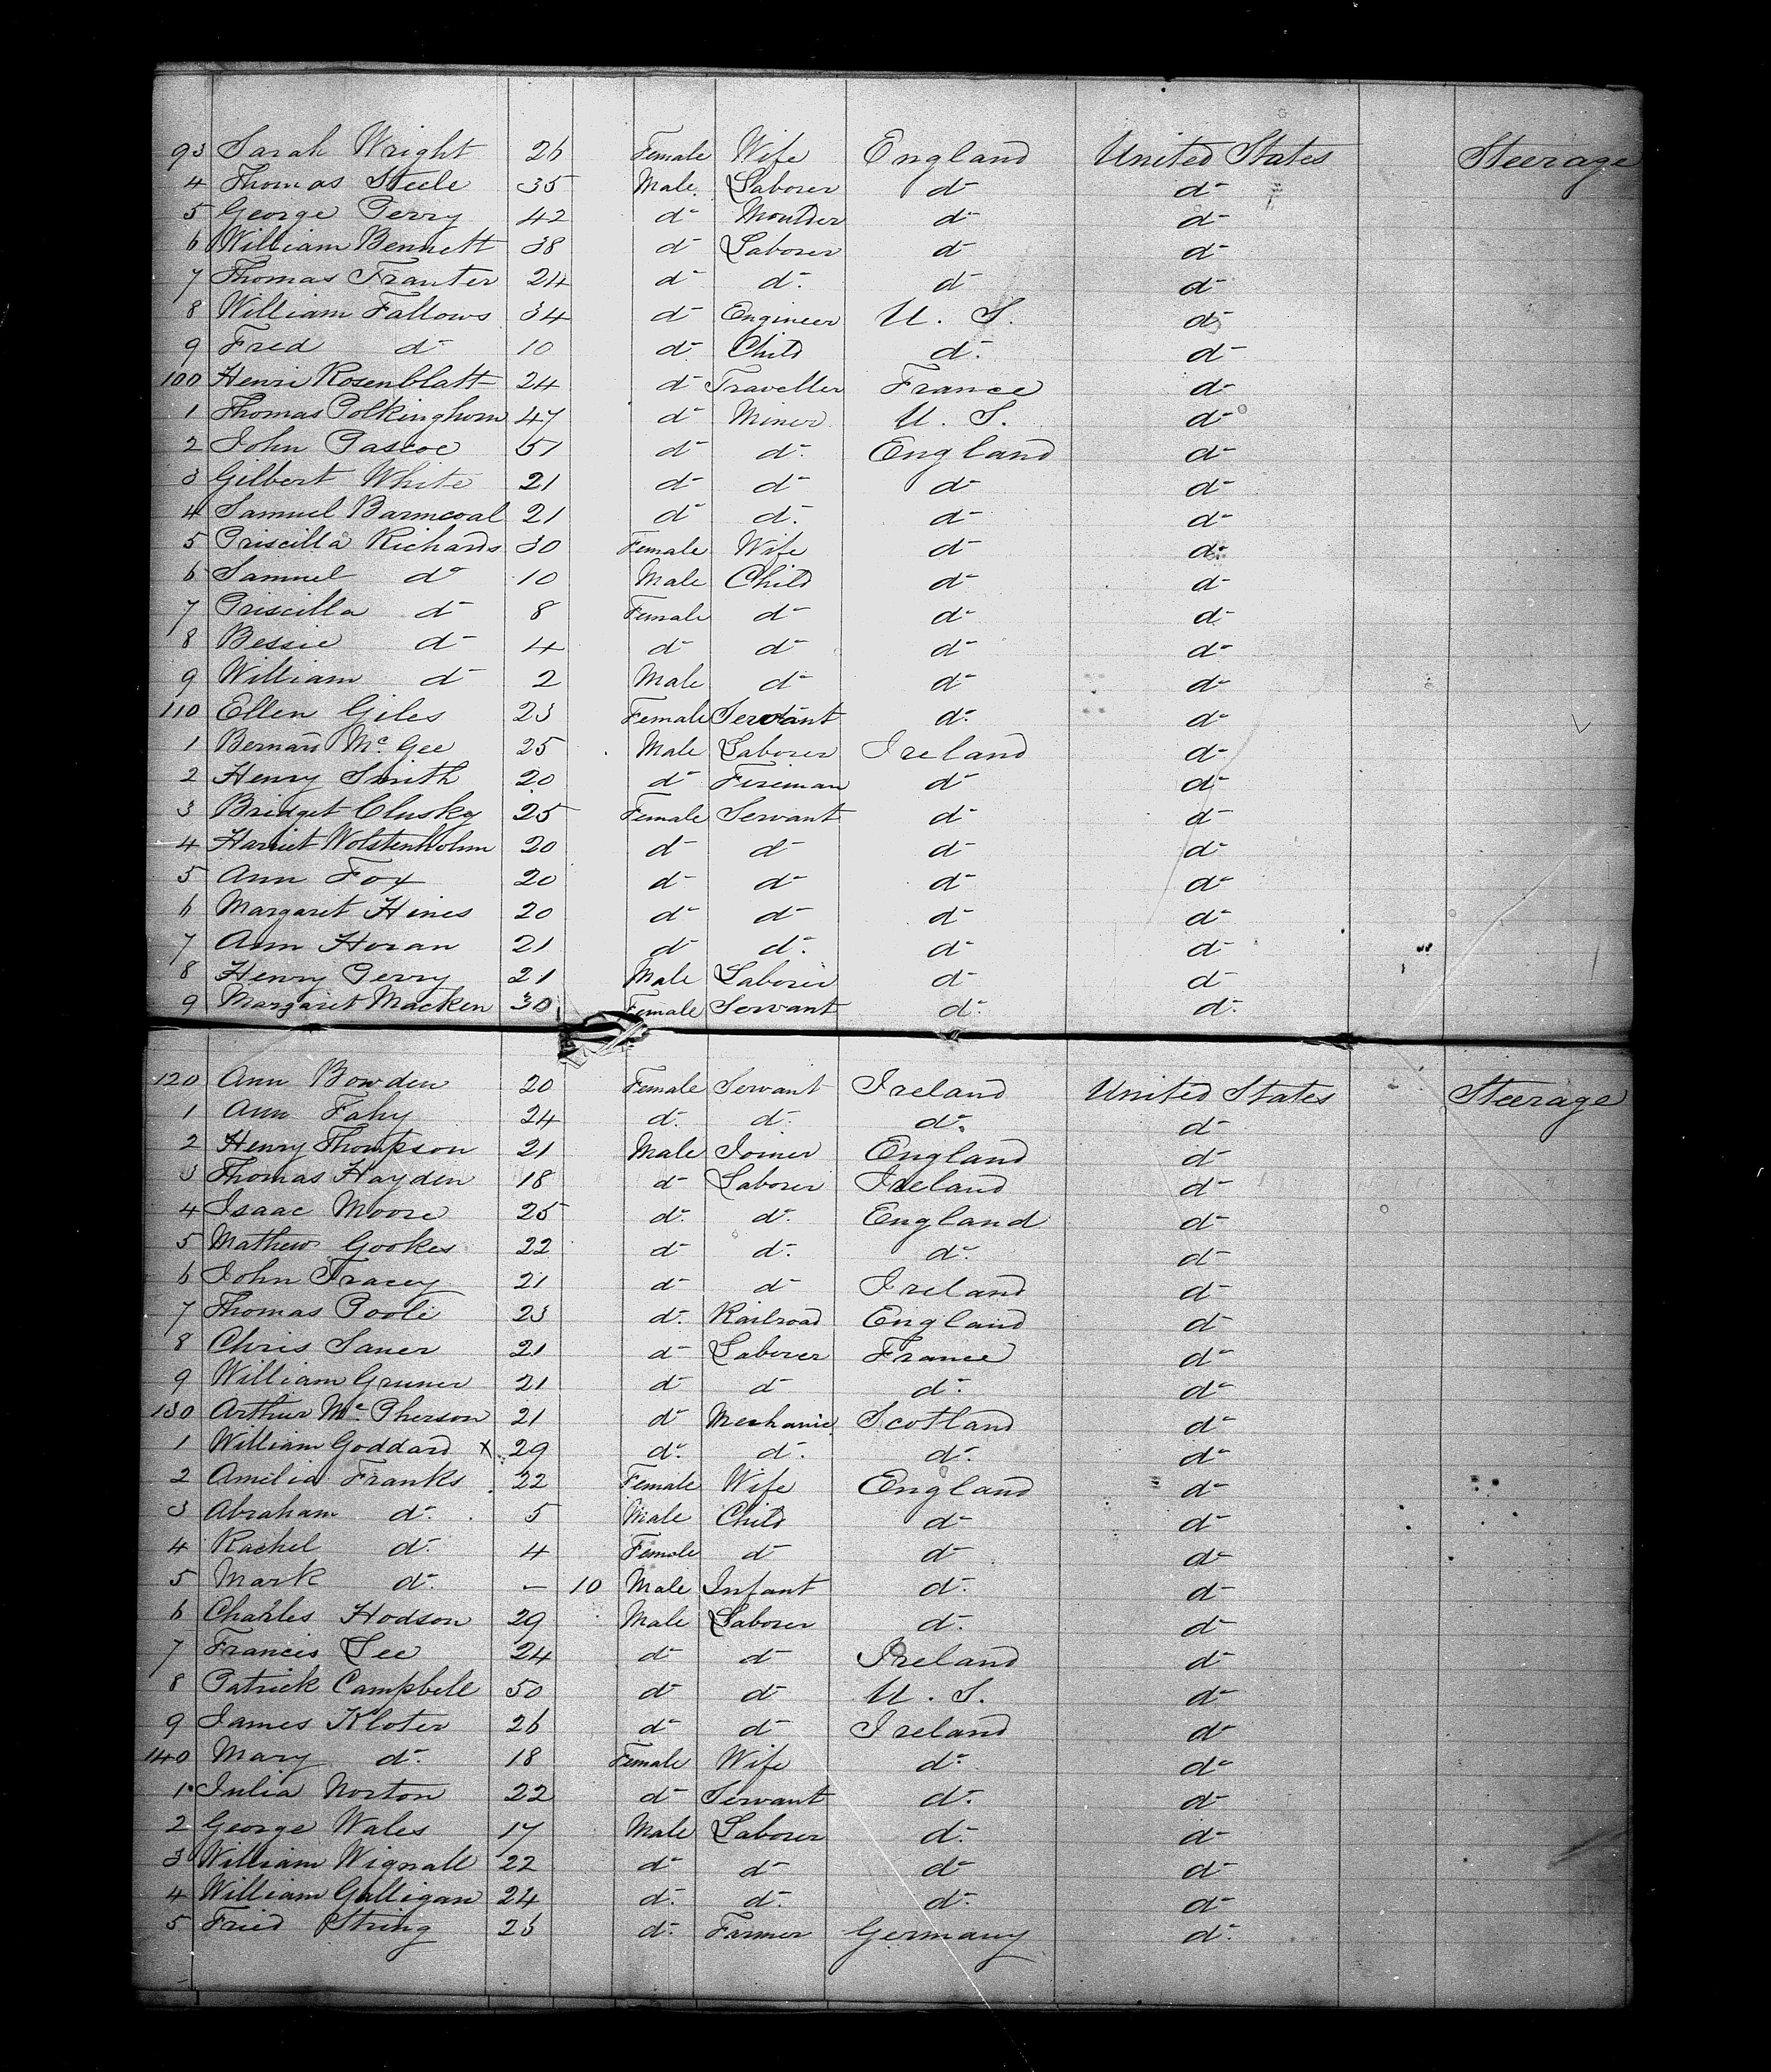 93 Sarah Wright 26 Female Wife England United States Steerage
4 Thomas Steele 35 Male Laborer do do
5 George Perry 42 do Moulder do do
6 William Bennett 38 do Laborer do do
7 Thomas Tranter 24 do do do do
8 William Fallows 34 do Engineer U. S. do
9 Fred do 10 do Child do do
100 Henri Rosenblatt 24 do Traveller France do
1 Thomas Polkinghorn 47 do Miner U. S. do
2 John Pascoe 51 do do England do
3 Gilbert White 21 do do do do
4 Samuel Barmcoal 21 do do do do
5 Priscilla Richards 30 Female Wife do do
6 Samuel do 10 Male Child do do
7 Priscilla do 8 Female do do do
8 Bessie do 4 do do do do
9 William do 2 Male do do do
110 Ellen Giles 23 Female Servant do do
1 Bernard Mc Gee 25 Male Laborer Ireland do
2 Henry Smith 20 do Fireman do do
3 Bridget Clusky 25 Female Servant do do
4 Harriet Wolstenholm 20 do do do do
5 Ann Fox 20 do do do do
6 Margaret Hines 20 do do do do
7 Ann Horan 21 do do do do
8 Henry Perry 21 Male Laborer do do
9 Margaret Macken 30 Female Servant do do
120 Ann Bowden 20 Female Servant Ireland United States Steerage
1 Ann Fahy 24 do do do do
2 Henry Thompson 21 Male Joiner England do
3 Thomas Hayden 18 do Laborer Ireland do
4 Isaac Moore 25 do do England do
5 Mathew Gookes 22 do do do do
6 John Tracey 21 do do Ireland do
7 Thomas Poole 23 do Railroad England do
8 Chris Saner 21 do Laborer France do
9 William Gruner 21 do do do do
130 Arthur Mc Pherson 21 do Mechanic Scotland do
1 William Goddard x 29 do do do do
2 Amelia Franks 22 Female Wife England do
3 Abraham do 5 Male Child do do
4 Rachel do 4 Female do do do
5 Mark do – 10 Male Infant do do
6 Charles Hodson 29 Male Laborer do do
7 Francis Lee 24 do do Ireland do
8 Patrick Campbell 50 do do U. S. do
9 James Kloter 26 do do Ireland do
140 Mary do 18 Female Wife do do
1 Julia Norton 22 do Servant do do
2 George Wales 17 Male Laborer do do
3 William Wignall 22 do do do do
4 William Galligan 24 do do do do
5 Fried String 26 do Farmer Germany do